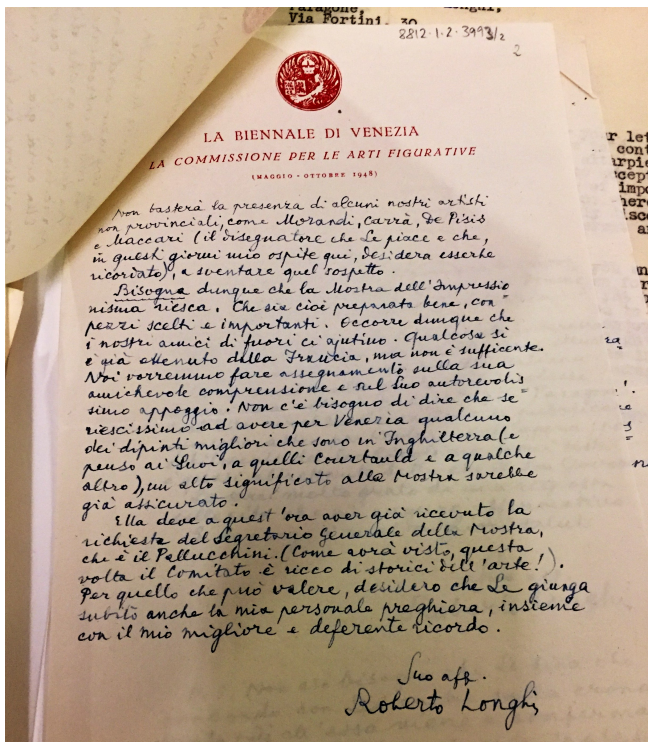 Via Fortini, 30
8812.1.2.3993/2
2
LA BIENNALE DI VENEZIA
LA COMMISSIONE PER LE ARTI FIGURATIVE
(MAGGIO - OTTOBRE 1948)
Non basterà la presenza di alcuni nostri artisti
non provinciali, come Morandi, Carrà, De Pisis
e Maccari (il disegnatore che Le piace e che,
in questi giorni mio ospite qui, desidera esserle
ricordato), a sventare quel sospetto.
Bisogna dunque che la Mostra dell'Impressio
nismo riesca. Che sia cioè preparata bene, con
pezzi scelti e importanti. Occorre dunque che
i nostri amici di fuori ci ajutino. Qualcosa si
è già ottenuto dalla Francia, ma non è sufficente.
Noi vorremmo fare assegnamento sulla sua
amichevole comprensione e sul Suo autorevolis
simo appoggio. Non c'è bisogno di dire che se
riescissimo ad avere per Venezia qualcuno
dei dipinti migliori che sono in Inghilterra (e
penso ai Suoi, a quelli Courtauld e a qualche
altro), un alto significato alla Mostra sarebbe
già assicurato.
Ella deve a quest'ora aver già ricevuto la
richiesta del Segretario Generale della Mostra,
che è il Pallucchini. (Come avrà visto, questa
volta il Comitato è ricco di storici dell'arte!).
Per quello che può valere, desidero che Le giunga
subito anche la mia personale preghiera, insieme
con il mio migliore e deferente ricordo.
Suo aff.
Roberto Longhi